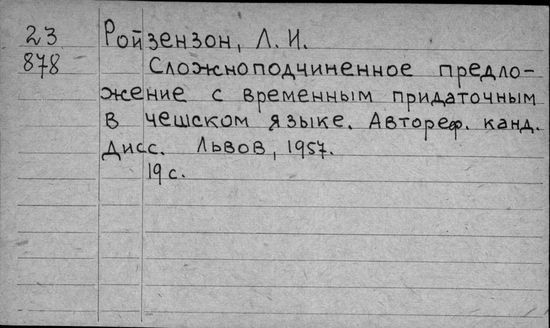 23 Ройзензон, Л. И.
878 Сложноподчиненное предло-
жение с временным придаточным
в чешском языке. Автореф. канд.
дисс. Львов, 1957.
19 с.